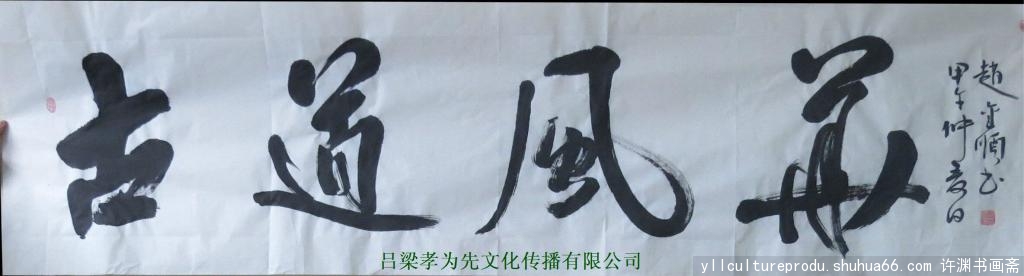 古道風華
甲午仲夏日
趙金順书
吕梁孝为先文化传播有限公司
yllcultureprodu.shuhua66.com 许渊书画斋